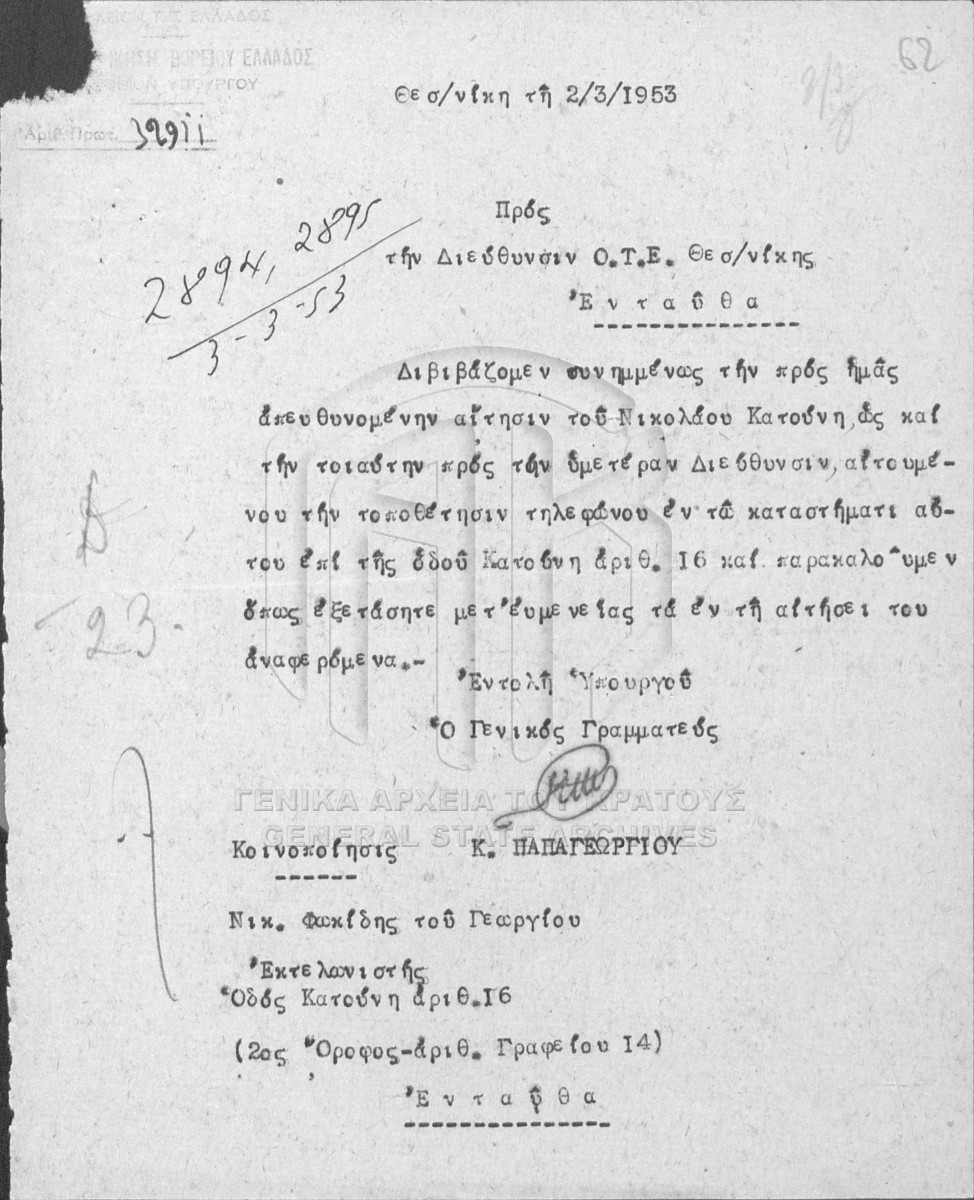 ΕΛΛΑΔΟΣ
ΒΟΡΕΙΟΥ ΕΛΛΑΔΟΣ
ΥΠΟΥΡΓΟΥ
Ἀριθ. Πρωτ. 32911
62
Θεσ/νίκη τῇ 2/3/1953
2894, 2895
3-3-53
Πρός
τήν Διεύθυνσιν Ο.Τ.Ε. Θεσ/νίκης
Ἐνταῦθα
Διβιβάζομεν συνημμένως τήν πρός ἡμᾶς
ἀπευθυνομένην αἴτησιν τοῦ Νικολάου Κατούνη, ὡς καί
τήν τοιαύτην πρός τήν ὑμετέραν Διεύθυνσιν, αἰτουμέ-
νου τήν τοποθέτησιν τηλεφώνου ἐν τῷ καταστήματι αὐ-
του ἐπί τῆς ὁδοῦ Κατούνη ἀριθ. 16 καί παρακαλοῦμεν
ὅπως ἐξετάσητε μετ'εὐμενείας τά ἐν τῇ αἰτήσει του
ἀναφερόμενα.-
23.
Ἐντολῇ Ὑπουργοῦ
Ὁ Γενικός Γραμματεύς
ΓΕΝΙΚΑ ΑΡΧΕΙΑ ΤΟΥ ΚΡΑΤΟΥΣ
GENERAL STATE ARCHIVES
Κοινοποίησις Κ. ΠΑΠΑΓΕΩΡΓΙΟΥ
Νικ. Φωκίδης τοῦ Γεωργίου
Ἐκτελωνιστής
Ὁδός Κατούνη ἀριθ.16
(2ος Ὄροφος-ἀριθ. Γραφείου 14)
Ἐνταῦθα